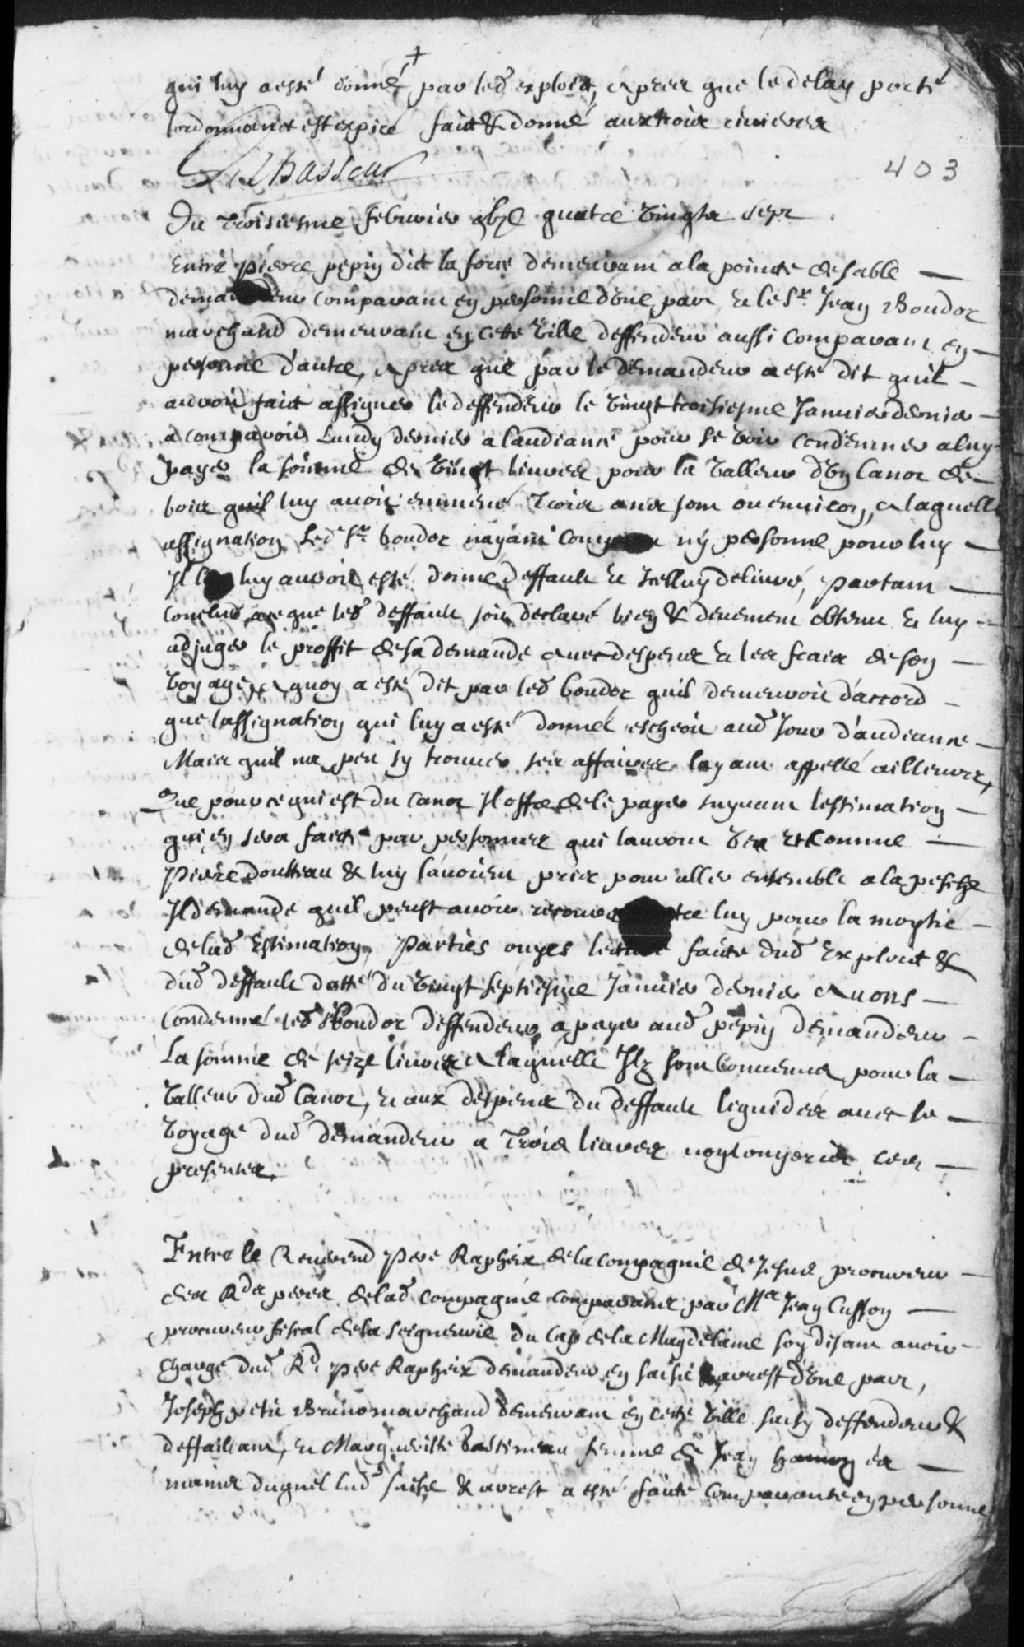 qui luy a esté donné par led exploict, apres que le delay porté
lordonnance est expiré faict & donné aux trois rivieres
LeVasseur
403
Du troisiesme febvrier gbjc quatre vingts sept
Entre pierre pepin dit la force demeurant a la pointe de sable
demandeur comparant en personne d'une part, et le Sr. Jean Boudor
marchand demeurant en cette ville deffendeur aussi comparant en
personne d'autre, apres que par le demandeur a esté dit quil
auroit faict assigner le deffendeur le vingt troisiesme Januier dernier
a comparoir Lundy dernier a laudiance pour se voir condemner a luy
payer la somme de vingt liures pour la valleur d'un canot de
bois quil luy auoit emmené trois ans sont ou enuiron, a laquelle
assignation led Sr boudor nayant comparu ny personne pour luy
Il luy auroit esté donné deffault et icelluy deliuré, partant
conclud a ce que led deffault soit declaré bien & deuement obtenu et luy
adjuger le proffit de sa demande auec despens et les fraix de son
voyage, a quoy a esté dit par led boudor quil demeuroit d'accord
que lassignation qui luy a esté donnée escheoit aud Jour d'audiance
Mais quil na peu sy trouuer ses affaires layant appellé ailleurs,
Que pour ce qui est du canot Il offre de le payer suyuant lestimation
qui en sera faicte par personnes qui lauront veu et comme
pierre douttreau & luy lauoient pris pour aller ensemble a la pesche
Il demande quil peust auoir recours contre luy pour la moytié
de lad Estimation, Parties ouyes lecture faite dud Exploict &
dud deffault datté du vingt septiesme Januier dernier auons
condemné led Sr boudor deffendeur a payer aud pepin demandeur
La somme de seize liures a laquelle Ilz sont conuenus pour la
valleur dud Canot, et aux despens du deffault liquidés auec le
voyage dud demandeur a trois liures non compris ces
presentes.
Entre le Reuerend pere Rapheix de la compagnie de Jesus procureur
des Rds peres de lad compagnie comparant par Me Jean Cusson
procureur fiscal de la seigneurie du Cap de la Magdelaine soy disant auoir
charge dud Rd. pere Rapheix demandeur en saisie & arrest d'une part,
Joseph petit Bruno marchand demeurant en cette ville saisy deffendeur &
deffaillant, et Margueritte bastineau femme de Jean
mains duquel lad saisie & arrest a esté faitte comparante en personne